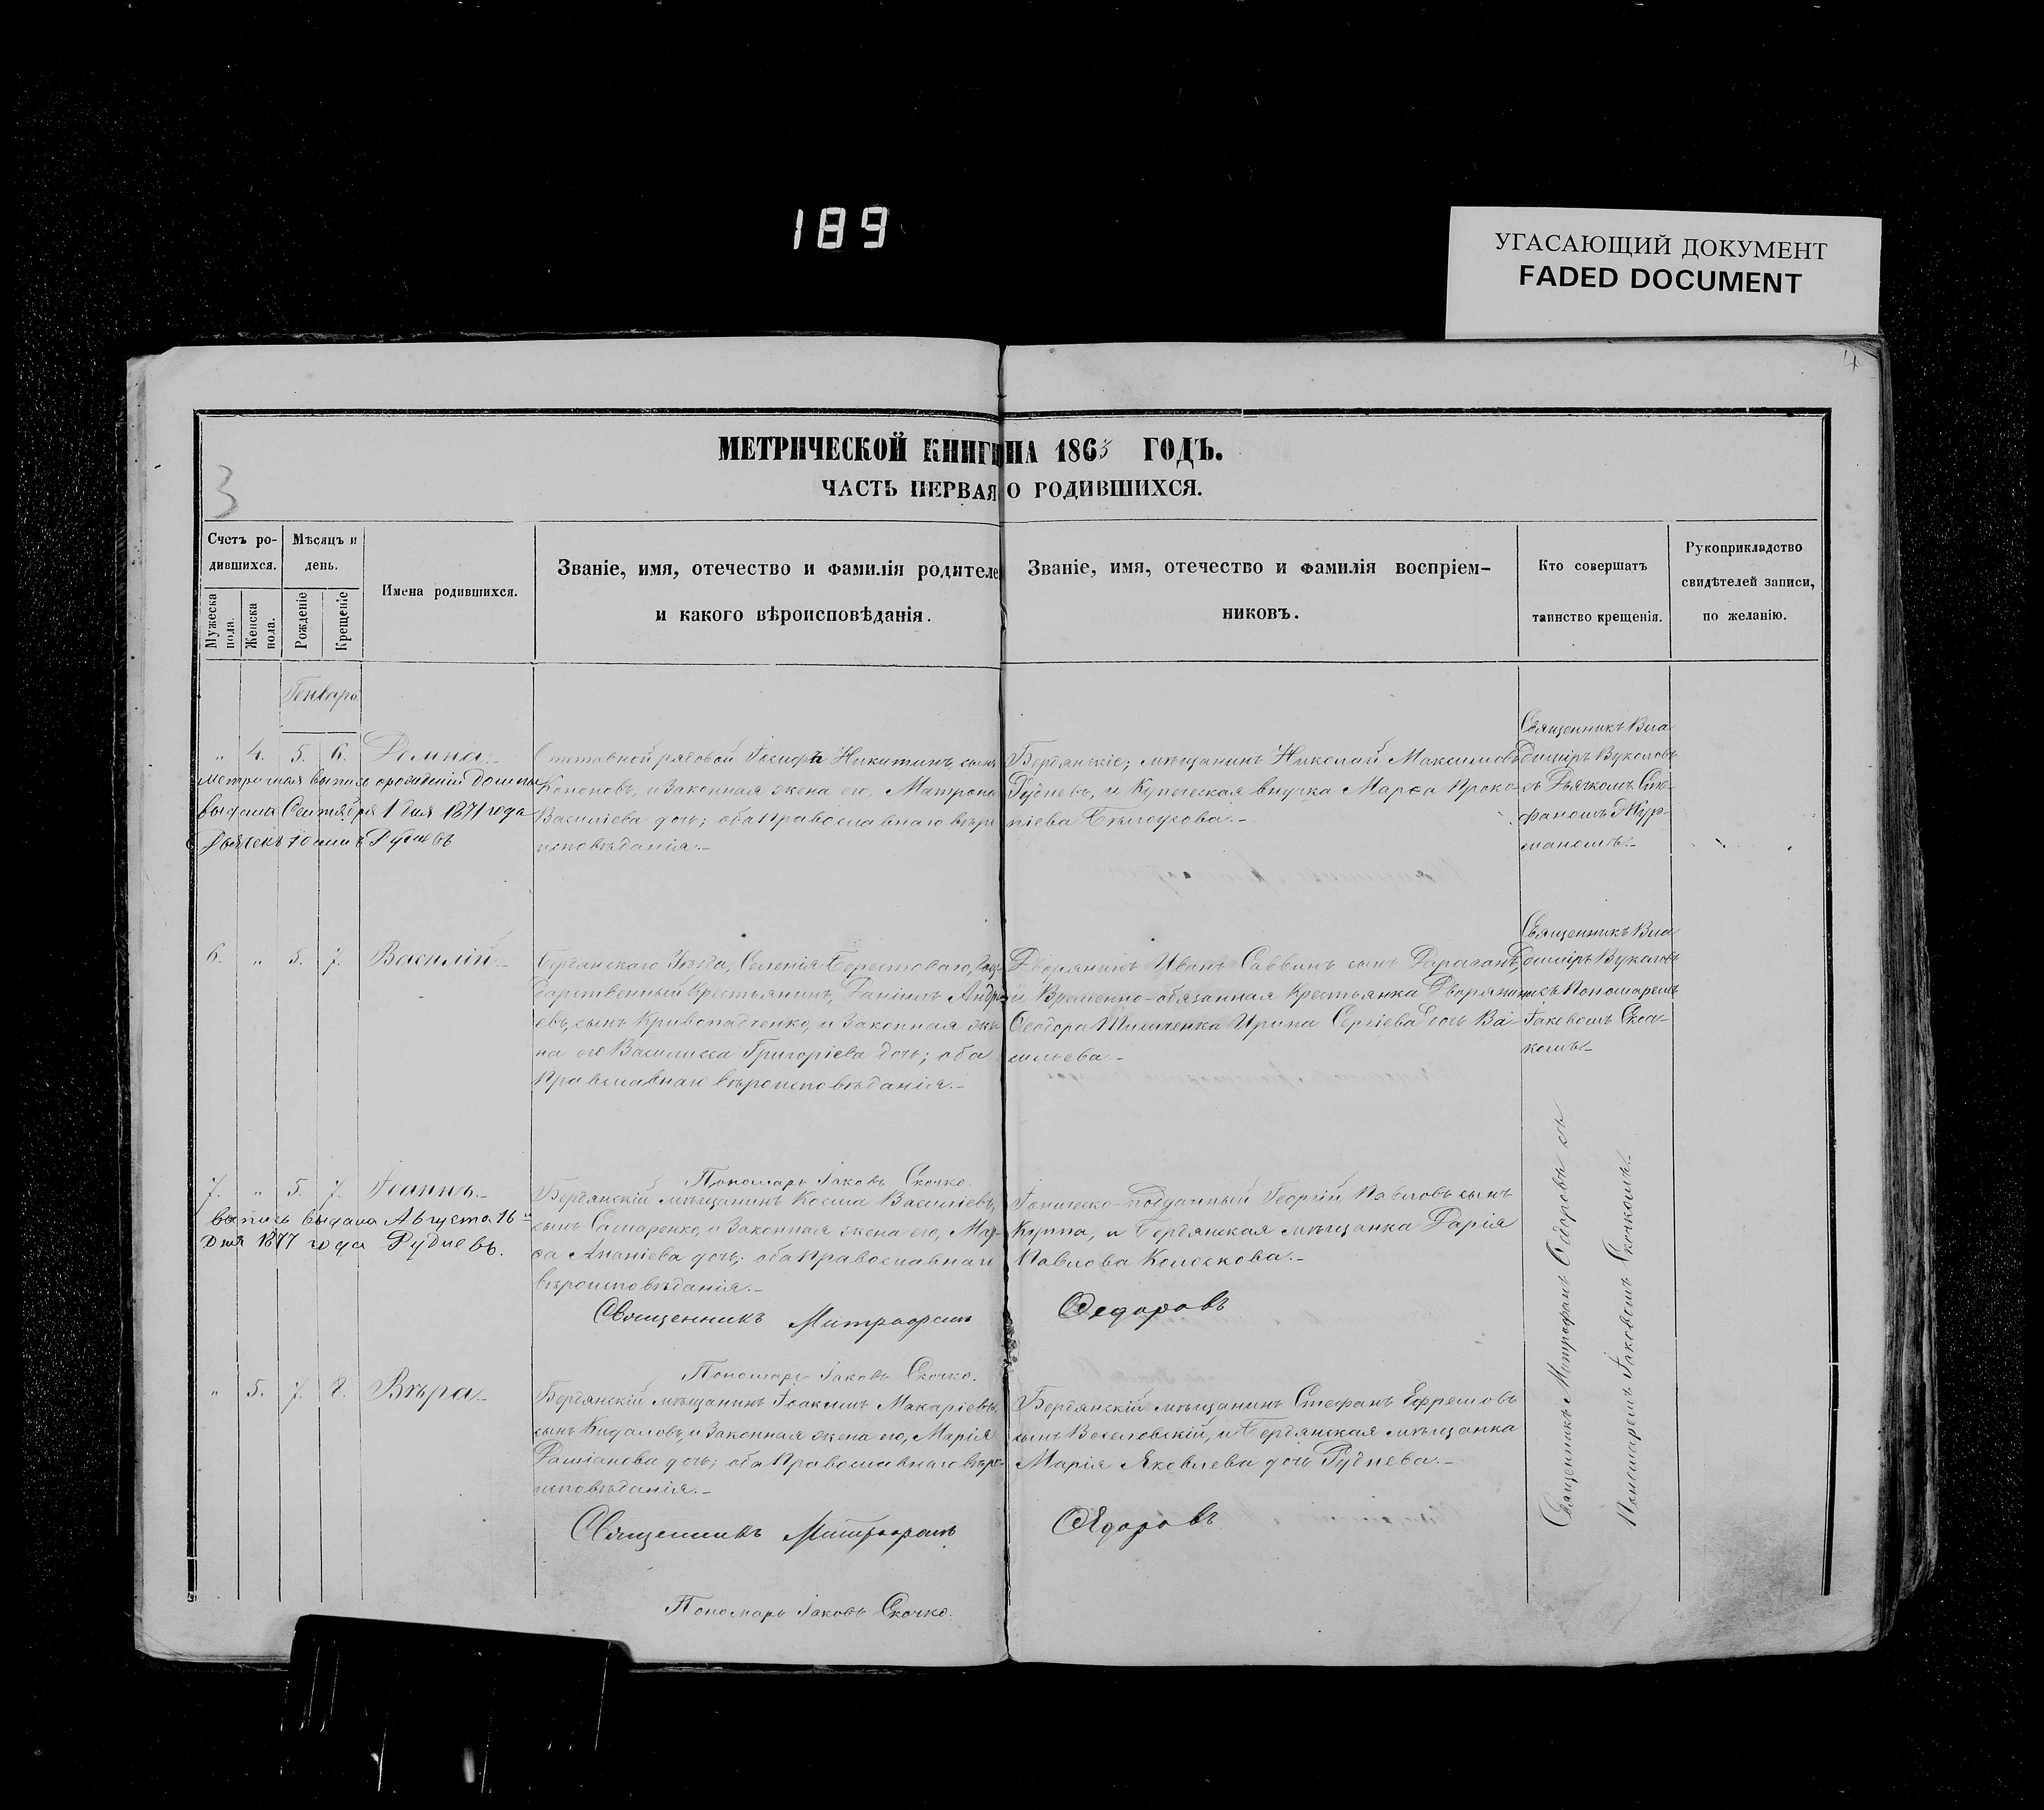 189
УГАСАЮЩИЙ ДОКУМЕНТ
FADED DOCUMENT
4
3
МЕТРИЧЕСКОЙ КНИГИ НА 1863 ГОДЪ.
ЧАСТЬ ПЕРВАЯ О РОДИВШИХСЯ.
Счетъ ро-
дившихся.
Мужеска
пола.
Женска
пола.
Мѣсяцъ и
день.
Рожденіе
Крещеніе
Имена родившихся.
Званіе, имя, отечество и фамилія родителе
и какого вѣроисповѣданія.
Званіе, имя, отечество и фамилія воспріем-
никовъ.
Кто совершатъ
таинство крещенія.
Рукоприкладство
свидѣтелей записи,
по желанію.
Генварь
„ 4. 5. 6. Домна.-
Метричная выпись о рожденіи Домны
выдана Сентября 1 дня 1871 года
Дьячекъ Рудневъ
рядовой Іосифъ Никитинъ сынъ
Кононовъ, и Законная жена его, Матрона
Василіева дочь; оба Православнаго вѣро
исповѣданія.-
Бердянскіе; мѣщанинъ Николай Максимовъ
Рудневъ, и Купеческая внучка Марѳа Проко-
піева Бѣлоусова.-
Священникъ Вла
диміръ Вуколовъ
съ Дьячкомъ Сте-
фаномъ Жур-
маномъ.-
6. „ 5. 7. Василій.-
Бердянскаго Уѣзда, Селенія Берестоваго, Госу-
дарственный Крестьянинъ, Даніилъ Андре
евъ, сынъ Кривопадченко, и Законная же-
на его Василисса Григоріева дочь; оба
Православнаго вѣроисповѣданія.-
Дворянинъ Иванъ Саввинъ сынъ Дараганъ,
и Временно-обязанная Крестьянка Дворянина
Ѳеодора Ирина Сергіева дочь Ва-
сильева.-
Священникъ Вла
диміръ Вуколовъ
съ Пономаремъ
Іаковомъ Скоч-
комъ.-
Пономарь Іаковъ Скочко.
7. „ 5. 7. Іоаннъ.-
выпись выдана Августа 16
дня 1877 года Рудневъ.
Бердянскій мѣщанинъ Косма Василіевъ,
сынъ Самаренко, и Законная жена его, Мар-
ѳа Ананіева дочь; оба Православнаго
вѣроисповѣданія.-
Іоническо-подданный Георгій Павловъ сынъ
Куппа, и Бердянская мѣщанка Дарія
Павлова Колоскова.-
Священникъ Митрофанъ Ѳедоровъ
Пономарь Іаковъ Скочко.
„ 5. 7. 8. Вѣра.-
Бердянскій мѣщанинъ Іоакимъ Макаріевъ,
сынъ Кидаловъ, и Законная жена его, Марія
Даміанова дочь; оба Православнаго вѣро-
исповѣданія.-
Бердянскій мѣщанинъ Стефанъ Ефремовъ
сынъ Веселовскій, и Бердянская мѣщанка
Марія Яковлева дочь Руднева.-
Священникъ Митрофанъ Ѳедоровъ съ
Пономаремъ Іаковомъ Скочкомъ.-
Священникъ Митрофанъ Ѳедоровъ
Пономарь Іаковъ Скочко.